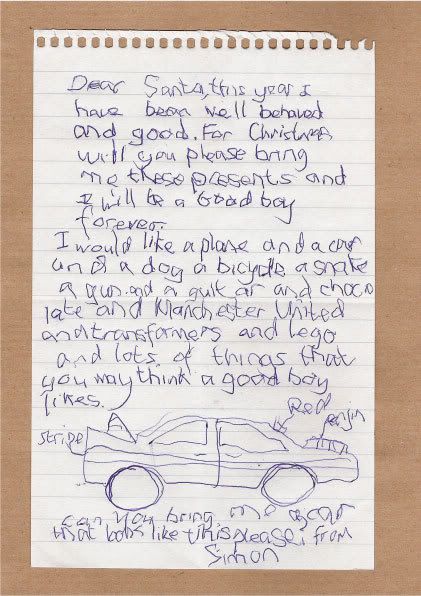 Dear Santa, this year I
have been well behaved
and good. For Christmas
will you please bring
me these presents and
I will be a Good boy
forever.
I would like a plane and a car
and a dog a bicycle a snake
a gun and a guit ar and choco
late and Manchester United
and transformers and lego
and lots of things that
you may think a good boy
likes.
Red
enjin
stripe
can you bring me a car
that looks like this please, from
Simon